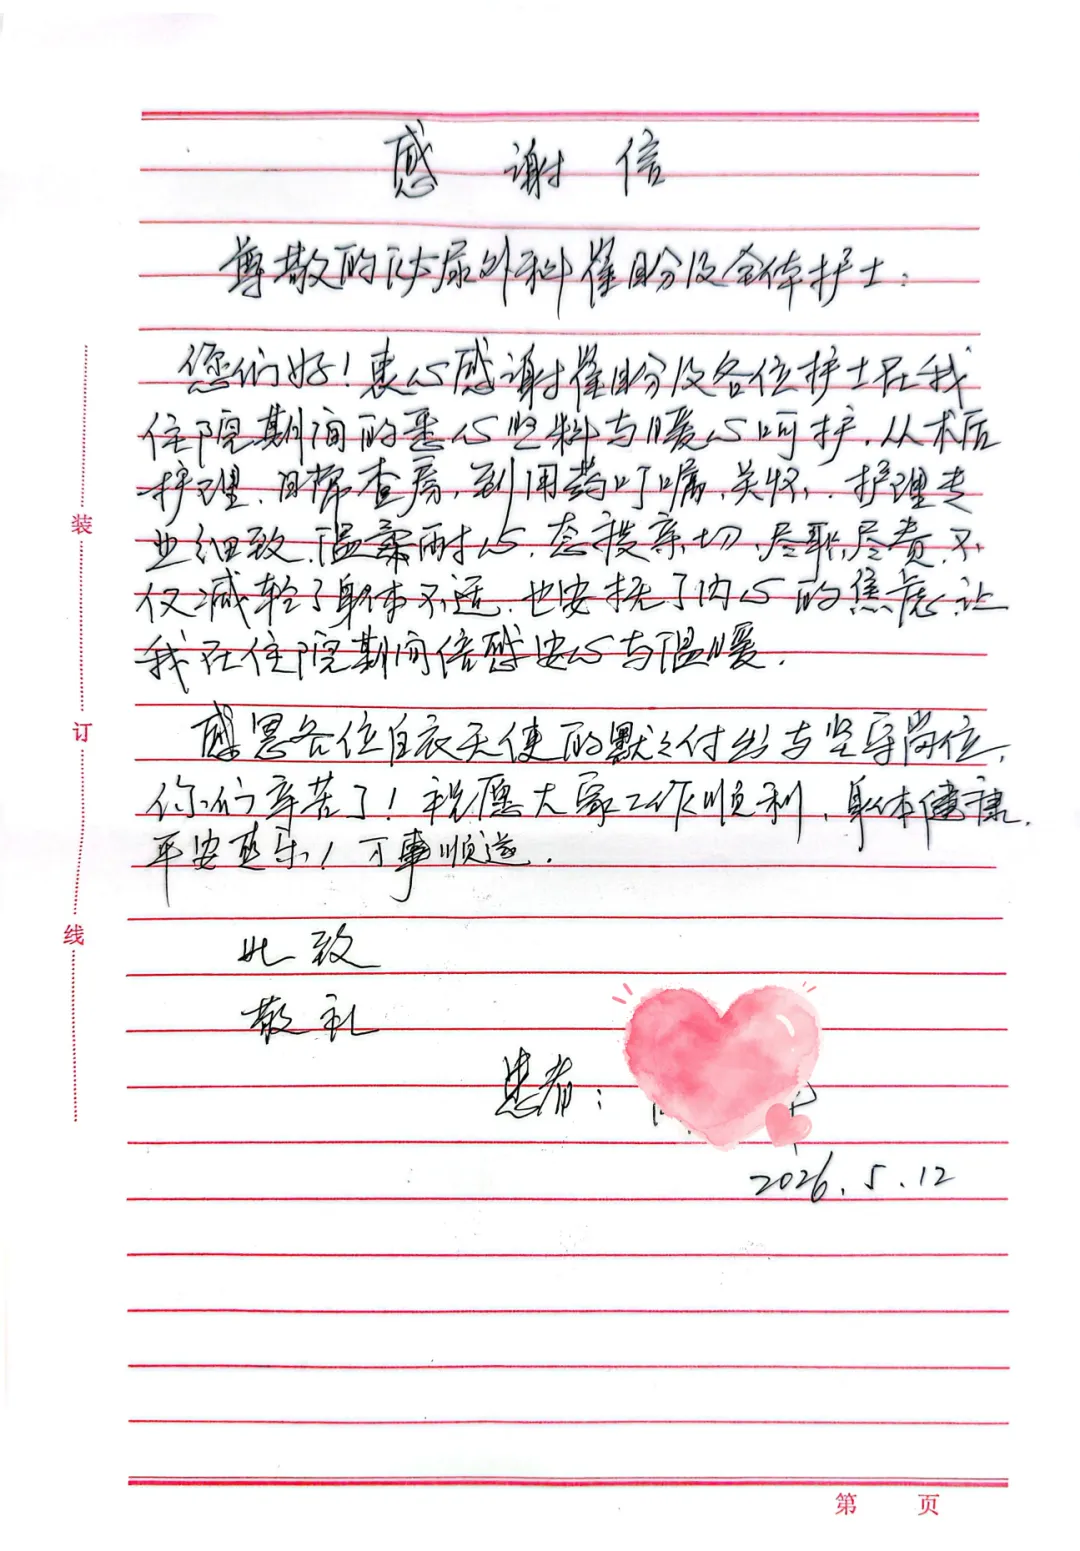 感谢信
尊敬的泌尿外科崔盼及全体护士：
您们好！衷心感谢崔盼及各位护士在我
住院期间的悉心照料与暖心呵护，从术后
护理、日常查房，到用药叮嘱、关怀，护理专
业细致，温柔耐心，态度亲切，尽职尽责，不
仅减轻了身体不适，也安抚了内心的焦虑，让
我在住院期间倍感安心与温暖。
感恩各位白衣天使的默々付出与坚守岗位，
你们辛苦了！祝愿大家工作顺利，身体健康，
平安喜乐！万事顺遂。
此致
敬礼
患者：
2026.5.12
装
订
线
第 页